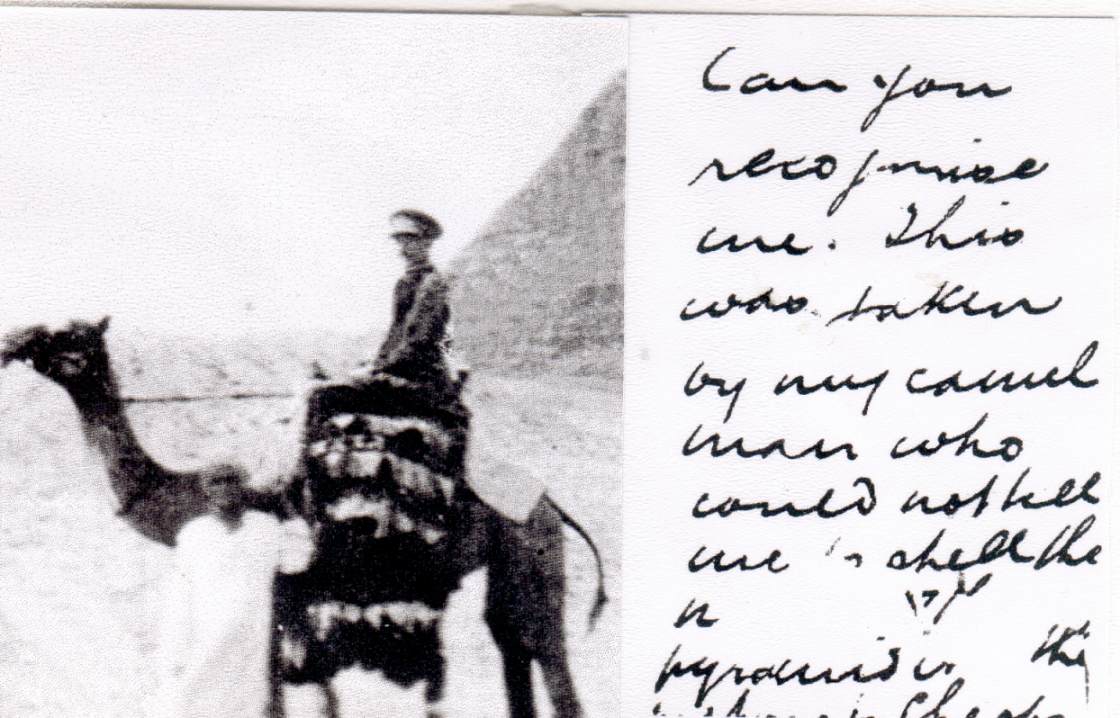 Can you
recognise
me. This
was taken
by my camel
man who
could not tell
me shell the
pyramid is the
Cheops